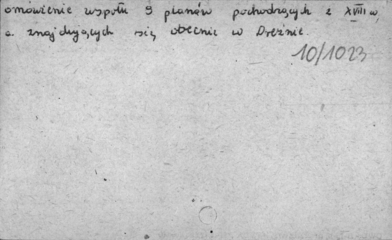 omówienie współu 9 planów pochodzących z XVIII w
a znajdujących się obecnie w Dreźnie.
10/1023